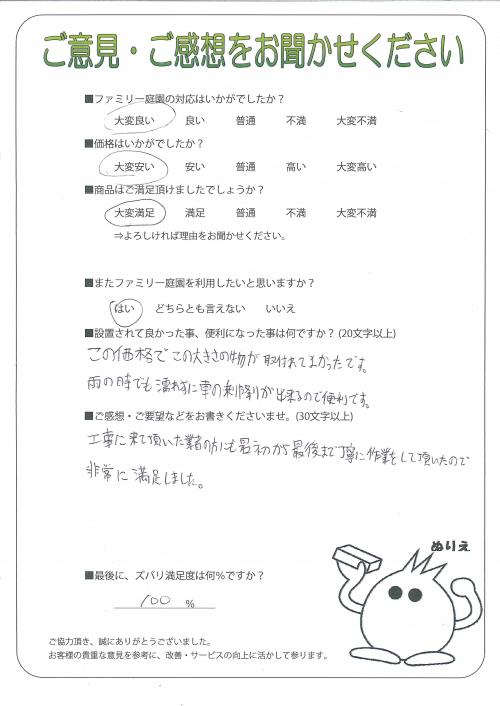 ご意見・ご感想をお聞かせください
■ファミリー庭園の対応はいかがでしたか？
大変良い 良い 普通 不満 大変不満
■価格はいかがでしたか？
大変安い 安い 普通 高い 大変高い
■商品はご満足頂けましたでしょうか？
大変満足 満足 普通 不満 大変不満
⇒よろしければ理由をお聞かせください。
■またファミリー庭園を利用したいと思いますか？
はい どちらとも言えない いいえ
■設置されて良かった事、便利になった事は何ですか？(20文字以上)
この価格でこの大きさの物が取付れてよかったです。
雨の時でも濡れずに車の乗り降りが出来るので便利です。
■ご感想・ご要望などをお書きくださいませ。(30文字以上)
工事に来て頂いた業者の方にも最初から最後まで丁寧に作業をして頂いたので
非常に満足しました。
ぬりえ
■最後に、ズバリ満足度は何％ですか？
100 %
ご協力頂き、誠にありがとうございました。
お客様の貴重な意見を参考に、改善・サービスの向上に活かして参ります。